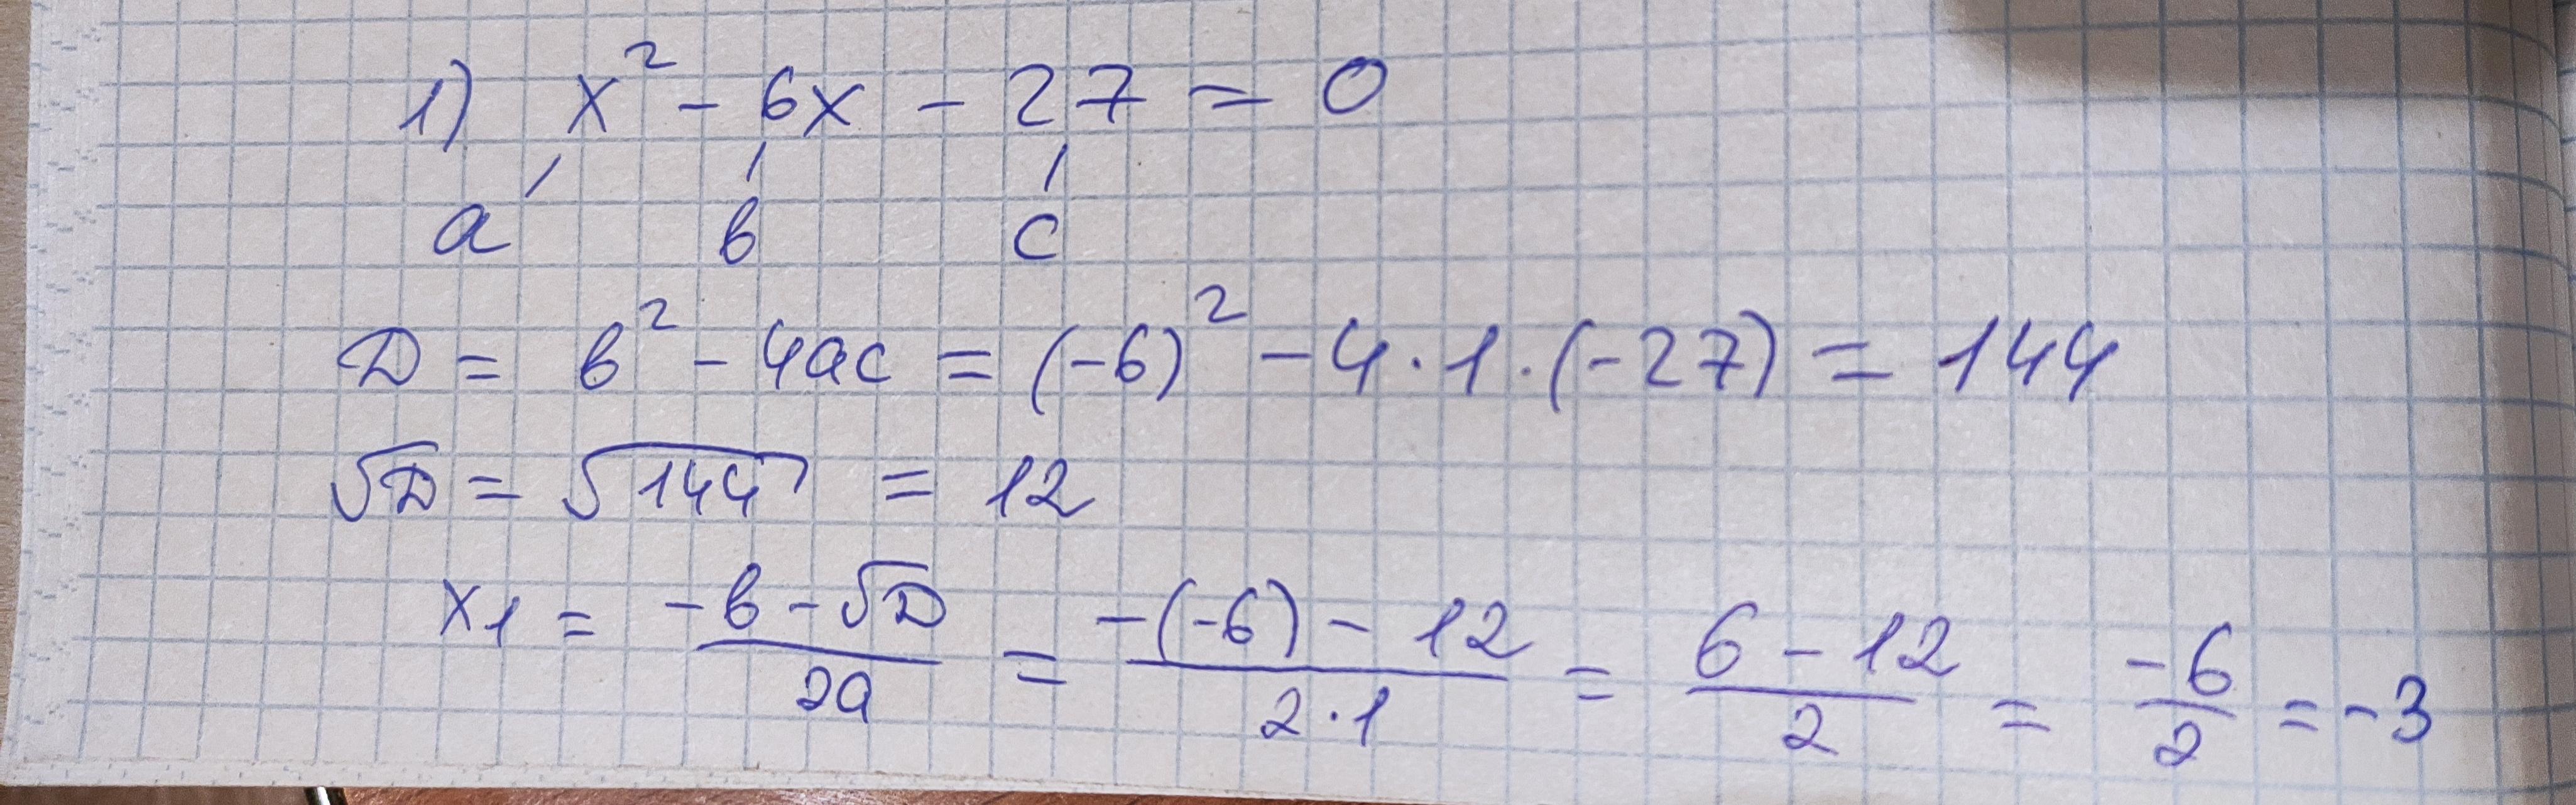 1) x² - 6x - 27 = 0
a в c
D = в² - 4ac = (-6)² - 4 · 1 · (-27) = 144
√D = √144 = 12
x₁ = (-в - √D)/(2a) = (-(-6) - 12)/(2 · 1) = (6 - 12)/2 = -6/2 = -3